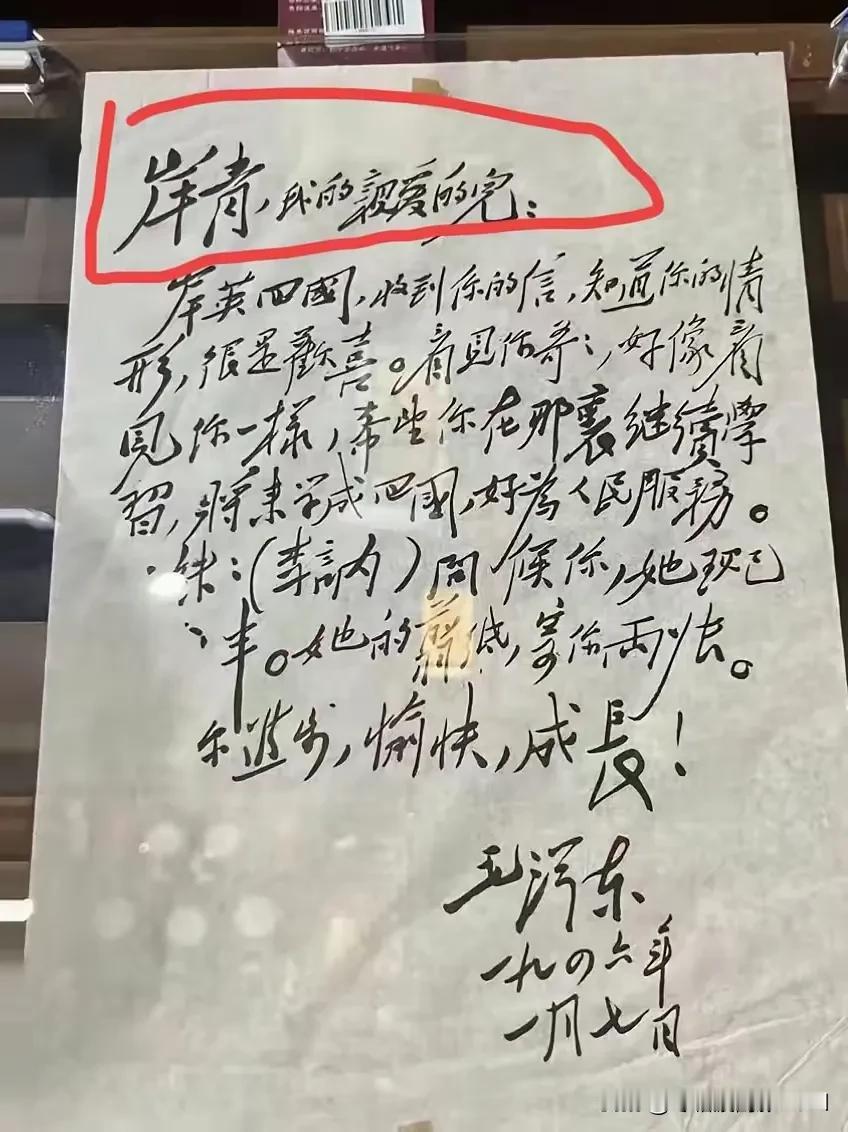 岸青,我的親愛的兒:
岸英回國,收到你的信,知道你的情
形,很是歡喜。看見你哥:,好像看
見你一樣,希望你在那裏繼續學
習,將來學成回國,好為人民服務。
妹:(李訥)問候你,她現已
五歲半。她的剪紙,寄你兩張。
你進步,愉快,成長!
毛澤東
一九四六年
一月七日